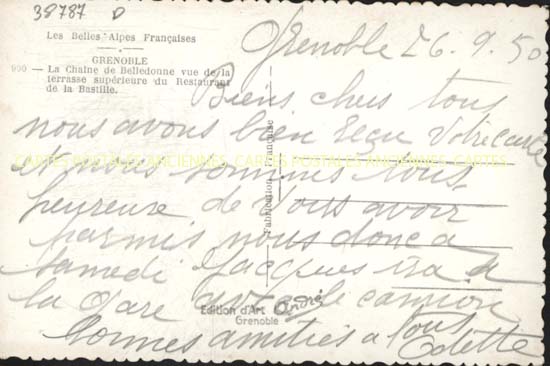 38787 D
Les Belles Alpes Françaises
GRENOBLE
900 — La Chaîne de Belledonne vue de la
terrasse supérieure du Restaurant
de la Bastille.
Grenoble 26.9.50
Biens chers tous
nous avons bien reçu votre carte
et nous sommes tous
heureuse de vous avoir
parmis nous donc a
samedi Jacques ira a
la gare avec le camion
André
bonnes amitiés a tous
Odette
Fabrication Française
Edition d'Art
Grenoble
CARTES POSTALES ANCIENNES CARTES POSTALES ANCIENNES CARTES